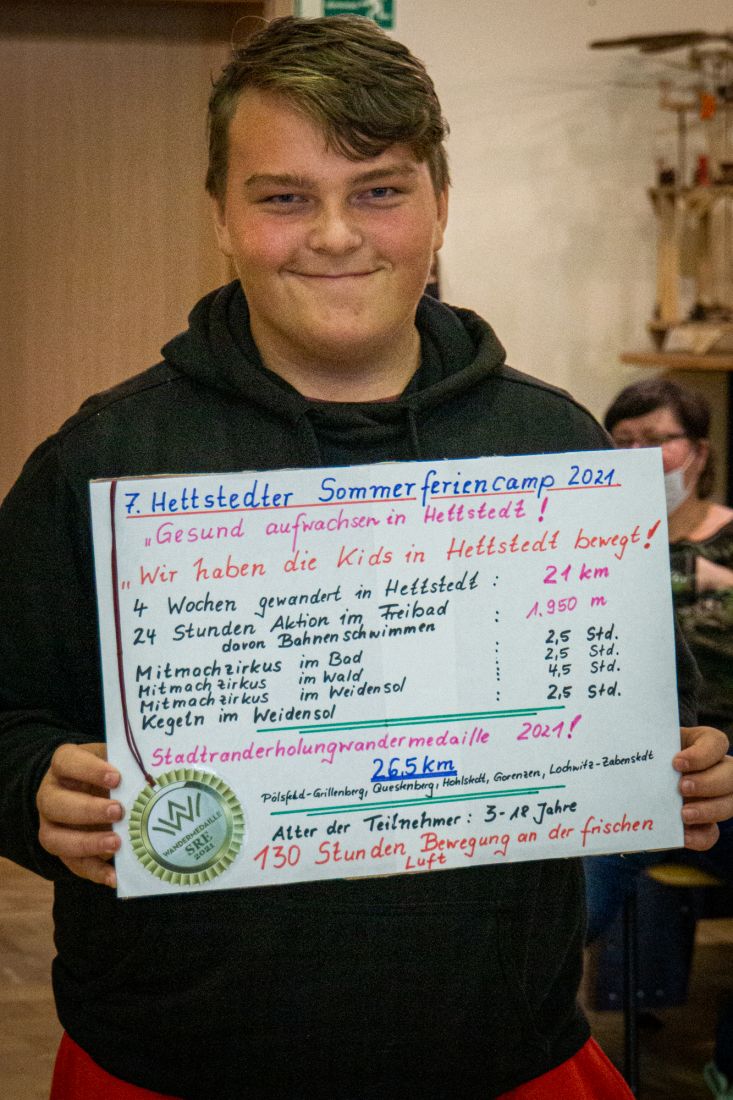 7. Hettstedter Sommerferiencamp 2021
„Gesund aufwachsen in Hettstedt!
„Wir haben die Kids in Hettstedt bewegt!
4 Wochen gewandert in Hettstedt : 21 km
24 Stunden Aktion im Freibad : 1.950 m
davon Bahnenschwimmen
Mitmachzirkus im Bad : 2,5 Std.
Mitmachzirkus im Wald : 2,5 Std.
Mitmachzirkus im Weidensol : 4,5 Std.
Kegeln im Weidensol : 2,5 Std.
Stadtranderholungwandermedaille 2021!
26,5 km
Pölsfeld-Grillenberg, Questenberg, Hohlstedt, Gorenzen, Lochwitz-Zabenstedt
Alter der Teilnehmer : 3-18 Jahre
130 Stunden Bewegung an der frischen
Luft
W
WANDERMEDAILLE
SRE
2021